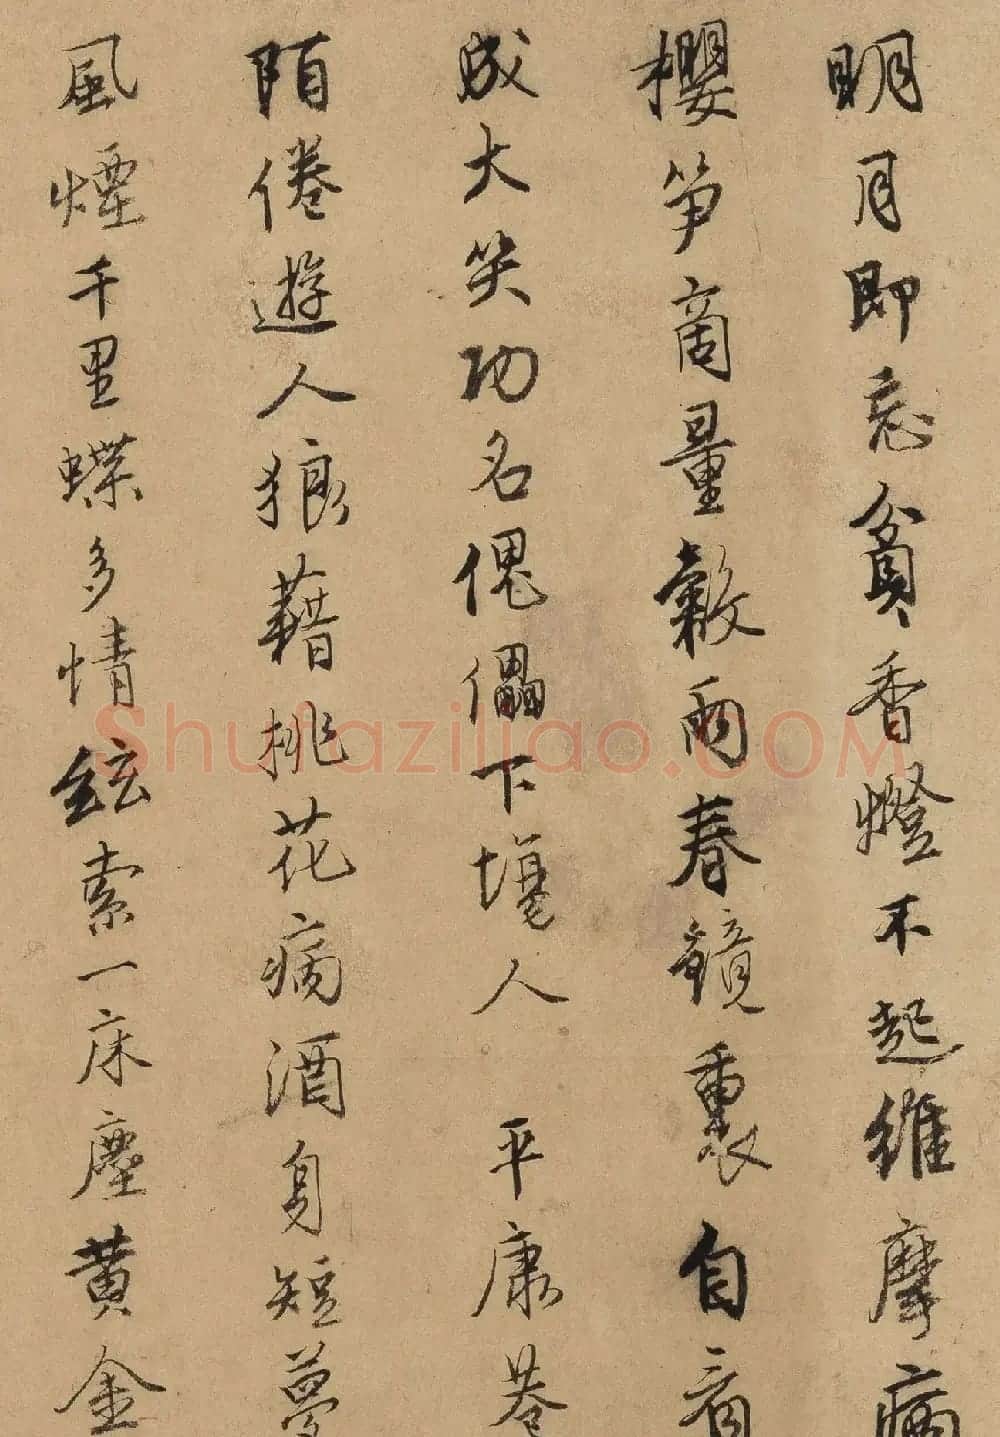 明月即忘貧香燈不起維摩病
櫻筍商量穀雨春鏡裏自看
成大笑功名傀儡下場人 平康巷
陌倦遊人狼藉桃花病酒身短夢
風煙千里蝶多情絃索一床塵黄金
Shufaziliao.COM